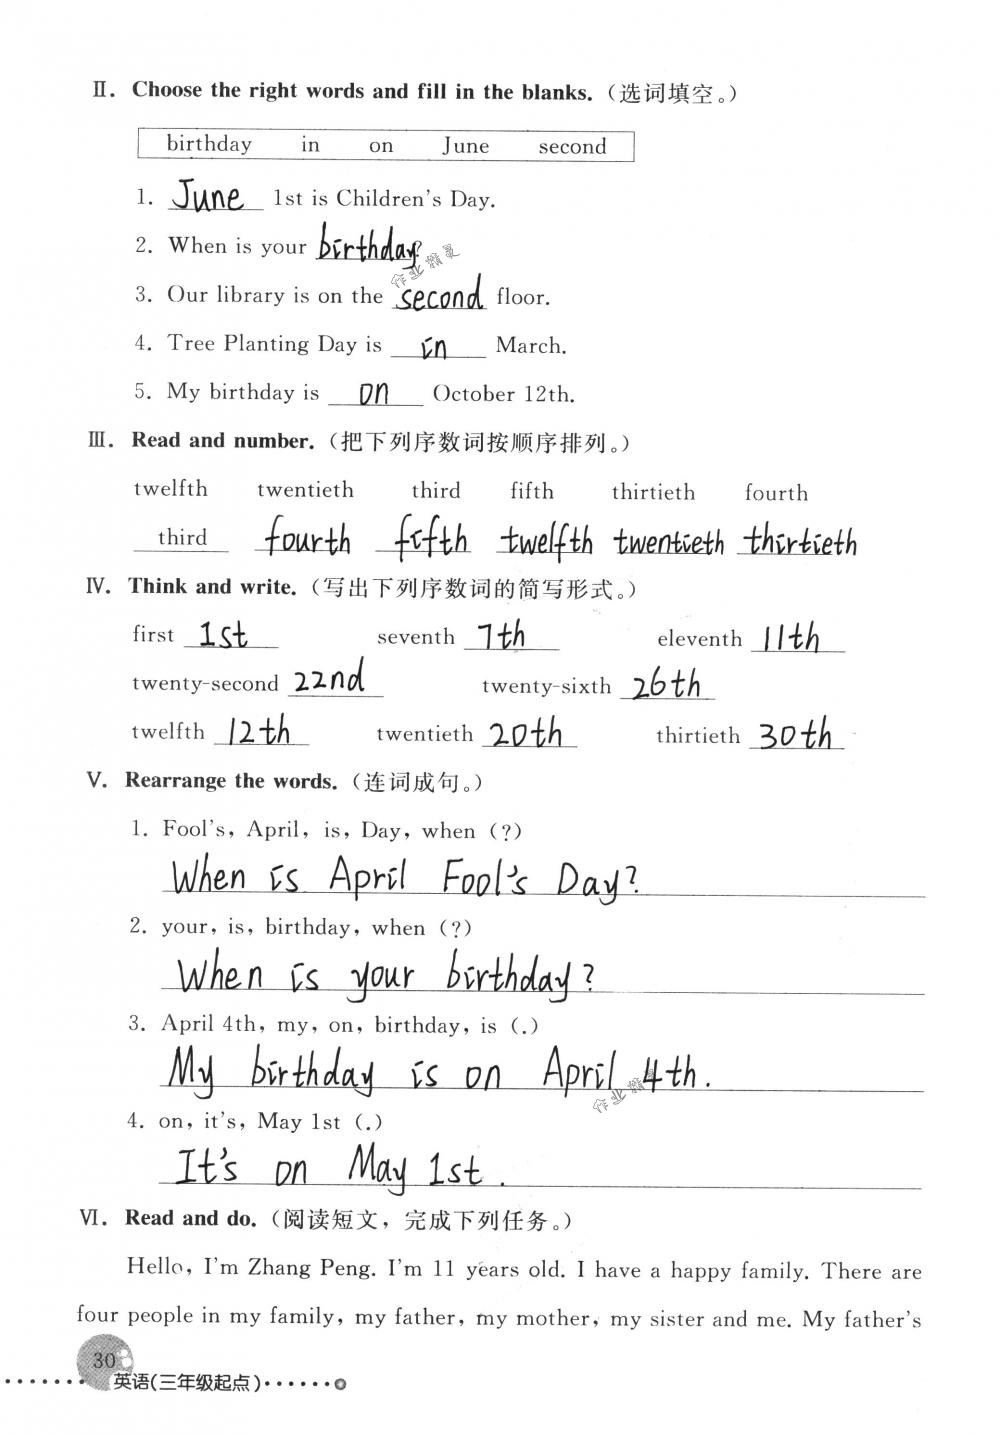 Ⅱ. Choose the right words and fill in the blanks.(选词填空。)
birthday in on June second
1. June 1st is Children's Day.
2. When is your birthday?
作业精灵
3. Our library is on the second floor.
4. Tree Planting Day is in March.
5. My birthday is on October 12th.
Ⅲ. Read and number.(把下列序数词按顺序排列。)
twelfth twentieth third fifth thirtieth fourth
third fourth fifth twelfth twentieth thirtieth
Ⅳ. Think and write.(写出下列序数词的简写形式。)
first 1st seventh 7th eleventh 11th
twenty-second 22nd twenty-sixth 26th
twelfth 12th twentieth 20th thirtieth 30th
Ⅴ. Rearrange the words.(连词成句。)
1. Fool's, April, is, Day, when (?)
When is April Fool's Day?
2. your, is, birthday, when (?)
When is your birthday?
3. April 4th, my, on, birthday, is (.)
My birthday is on April 4th.
作业精灵
4. on, it's, May 1st (.)
It's on May 1st.
Ⅵ. Read and do.(阅读短文，完成下列任务。)
Hello, I'm Zhang Peng. I'm 11 years old. I have a happy family. There are
four people in my family, my father, my mother, my sister and me. My father's
30
英语(三年级起点)